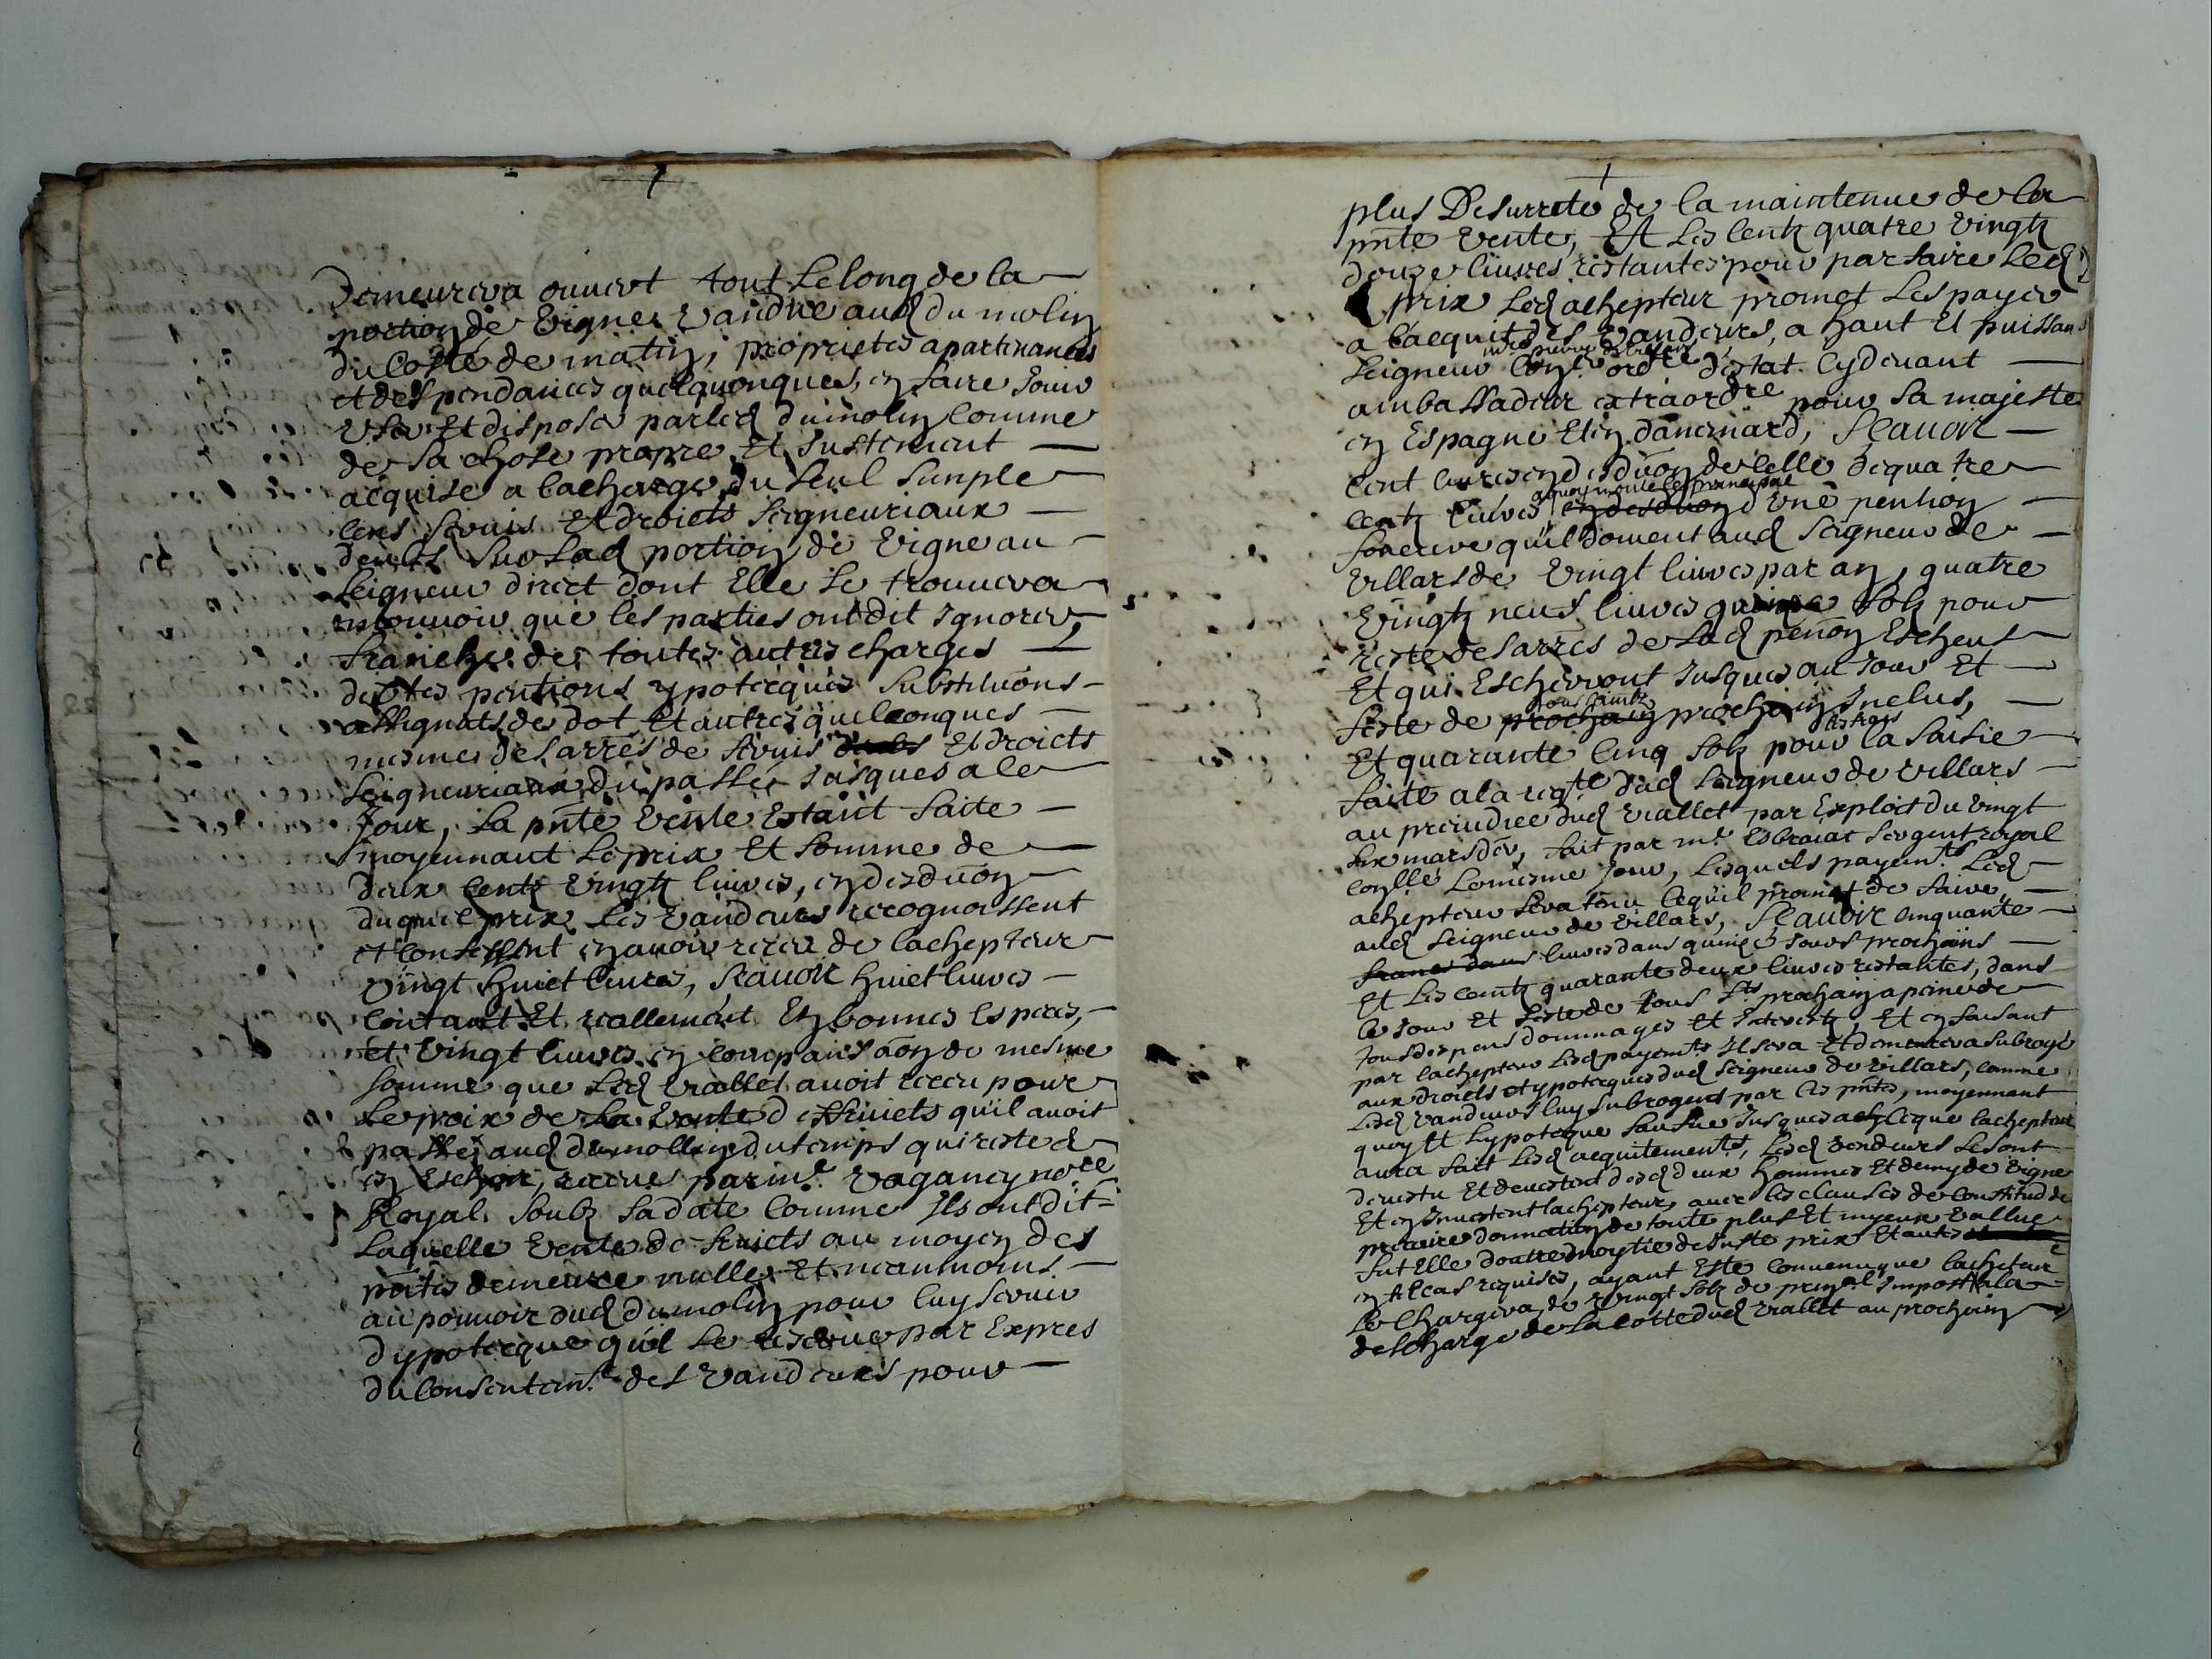 demeurera ouvert tout le long de la
portion de vigne vandue aud du molin
du costé de matin, proprietes apartenances
et despendances quelquonques, en faire jouir
user et disposer par led dumolin comme
de sa chose propre et justement
acquise a la charge du seul simple
cens servis et droicts seigneuriaux
deubts sur lad portion de vigne au
seigneur direct dont elle se trouvera
mouvoir que les parties ont dit ignorer,
franche de toutes autres charges
debtes pentions ypotecques substituons
assignats de dot et autres quelconques
mesmes des arres de servis deubs et droicts
seigneuriaux du passé jusques a ce
jour, la pnte vente estant faite
moyennant le prix et somme de
deux centz vingtz livres, en desduon
duquel prix les vandeurs recognoissent
et confessent en avoir receu de lachepteur
vingt huict livres, scavoir huict livres
contant et reallement en bonnes especes,
et vingt livres en compansaon de mesme
somme que led viallet avoit receu pour
le prix de la vente des fruicts quil avoit
passé aud dumollin du temps qui reste a
en eschoir, receue par me. vaganey nore
Royal soubz sa date comme ils ont dit
laquelle vente de fruicts au moyen des
pntes demeure nulle et neanmoins
au pouvoir dud dumolin pour luy servir
dypotecque quil se reserve par expres
du consentemt. des vandeurs pour
plus de surreté de la maintenue de la
pnte vente, et les centz quatre vingtz
douze livres restantes pour parfaire led
prix led achepteur promet les payer
a lacquit des vandeurs, a haut et puissant
seigneur conser ordre destat cydevant
ambassadeur extraordre pour sa majesté
en espagne et en danemard, scavoir
cent livres en desduon de celle de quatre
a quoy monte le principal
centz livres en desduon d'une pention
fonciere quil doivent aud seigneur de
villars de vingt livres par an, quatre
vingtz neuf livres quinze solz pour
reste des arres de lad penon escheus
et qui escherront jusques au jour et
tous saintz
feste de prochain prochain inclus,
les frais
et quarante cinq solz pour la saisie
faite a la reqte dud seigneur de villars
au preiudice dud viallet par exploit du vingt
six mars der, fait par me. esbraiat sergent royal
le mesme jour, lesquels payemts led
achepteur sera tenu ce quil promet de faire,
aud seigneur de villars, scavoir cinquante
francs dans livres dans quinze jours prochains
et les centz quarante deux livres restantes, dans
le jour et feste de tous sts prochain a peine de
tous despens dommages et interestz, et en faisant
par lachepteur lesd payemts il sera et demeurera subrogé
aux droicts et ypotecques dud seigneur de villars, comme
lesd vandeurs luy subrogent par ces pntes, moyennant
quoy et lypotecque jusques a ce que lachepteur
aura fait lesd acquitements, lesd vendeurs se sont
devestu et devestent desd deux hommes et demy de vigne
et en investent lachepteur avec les clauses de constitud de
precaire donnation de toute plus et myeux vallue
fut elle doutre moytie de juste prix et autres
en tel cas requises, ayant esté convenu que lacheteur
se chargera de vingt solz de prinal impost a la
descharge de la cotte dud viallet au prochain